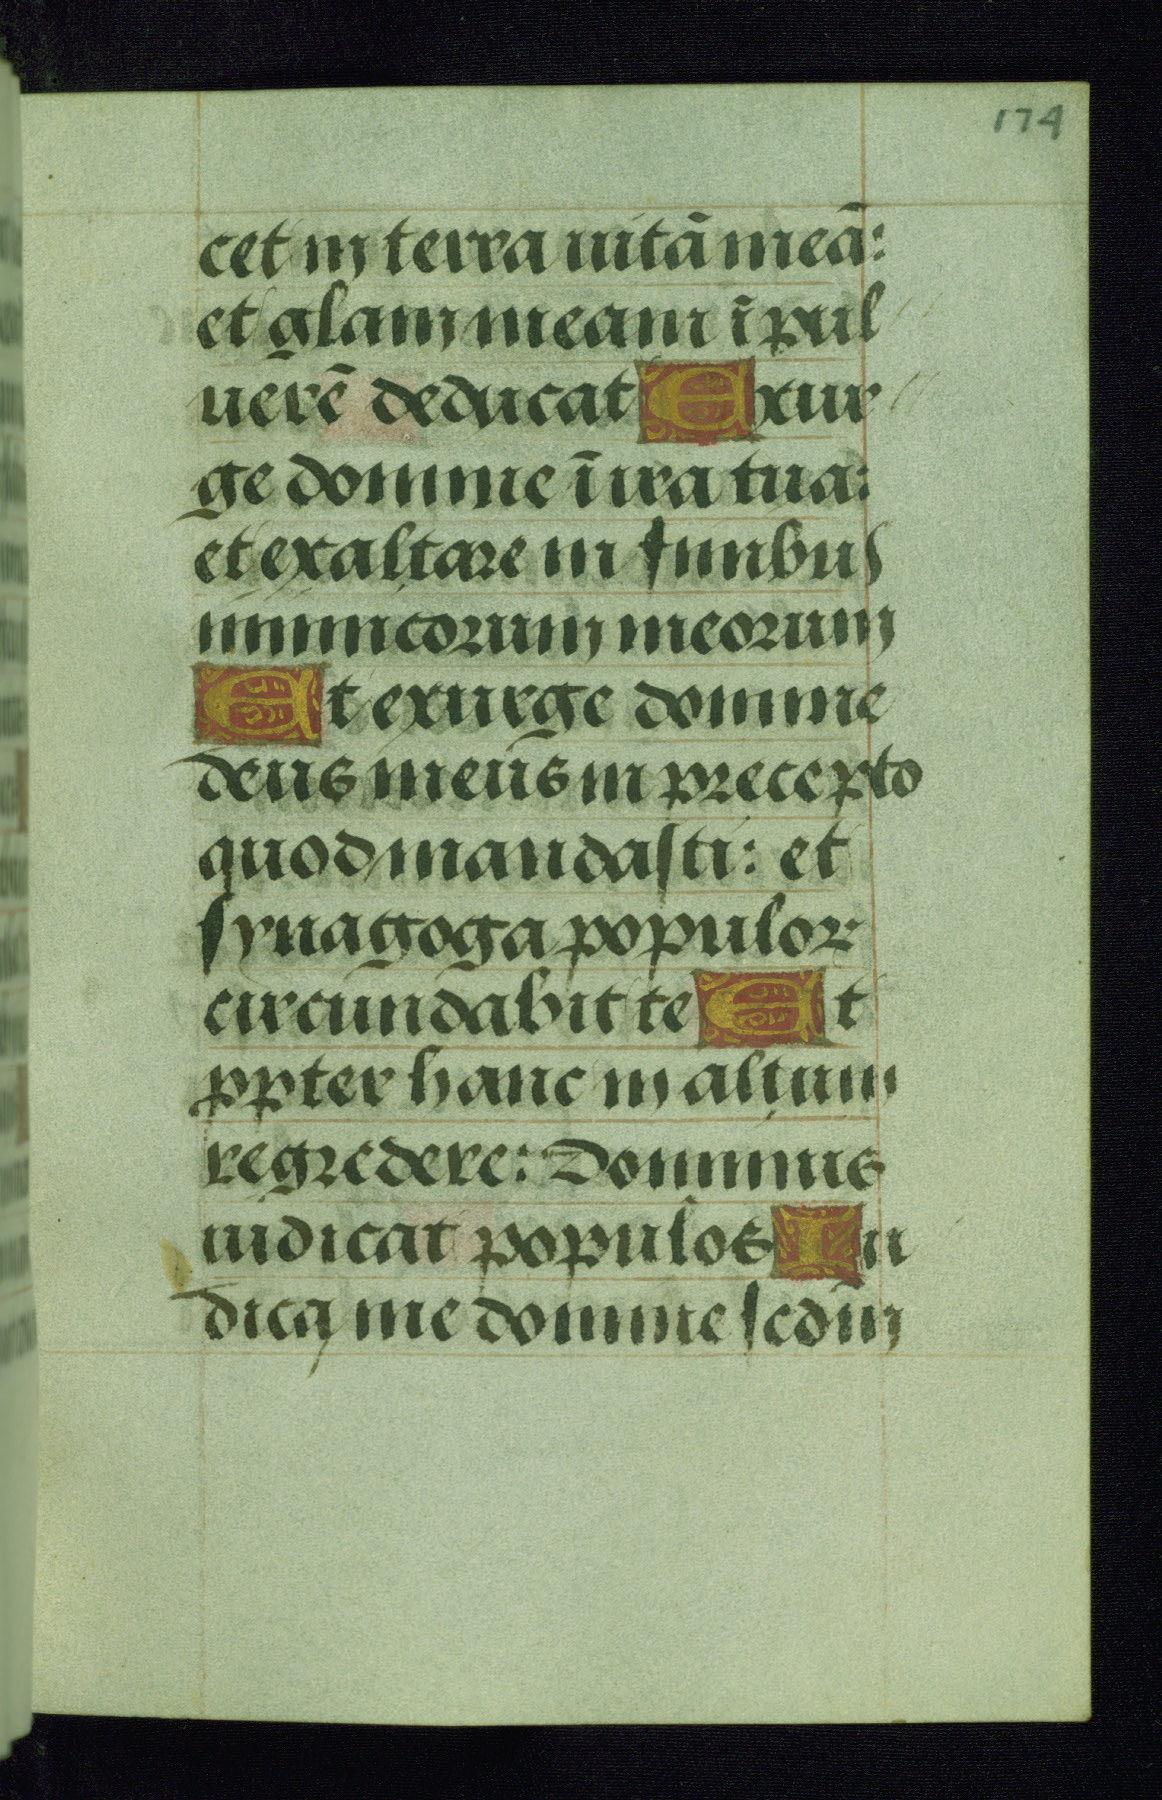 174
cet in terra uitā meā:
et glam meam ī pul
uerē deducat Exur
ge domine ī ira tua:
et exaltare in finibus
inimicorum meorum
Et exurge domine
deus meus in precepto
quod mandasti: et
synagoga populor
circundabit te Et
ppter hanc in altum
regredere: Dominus
iudicat populos Iu
dica me domine sedm